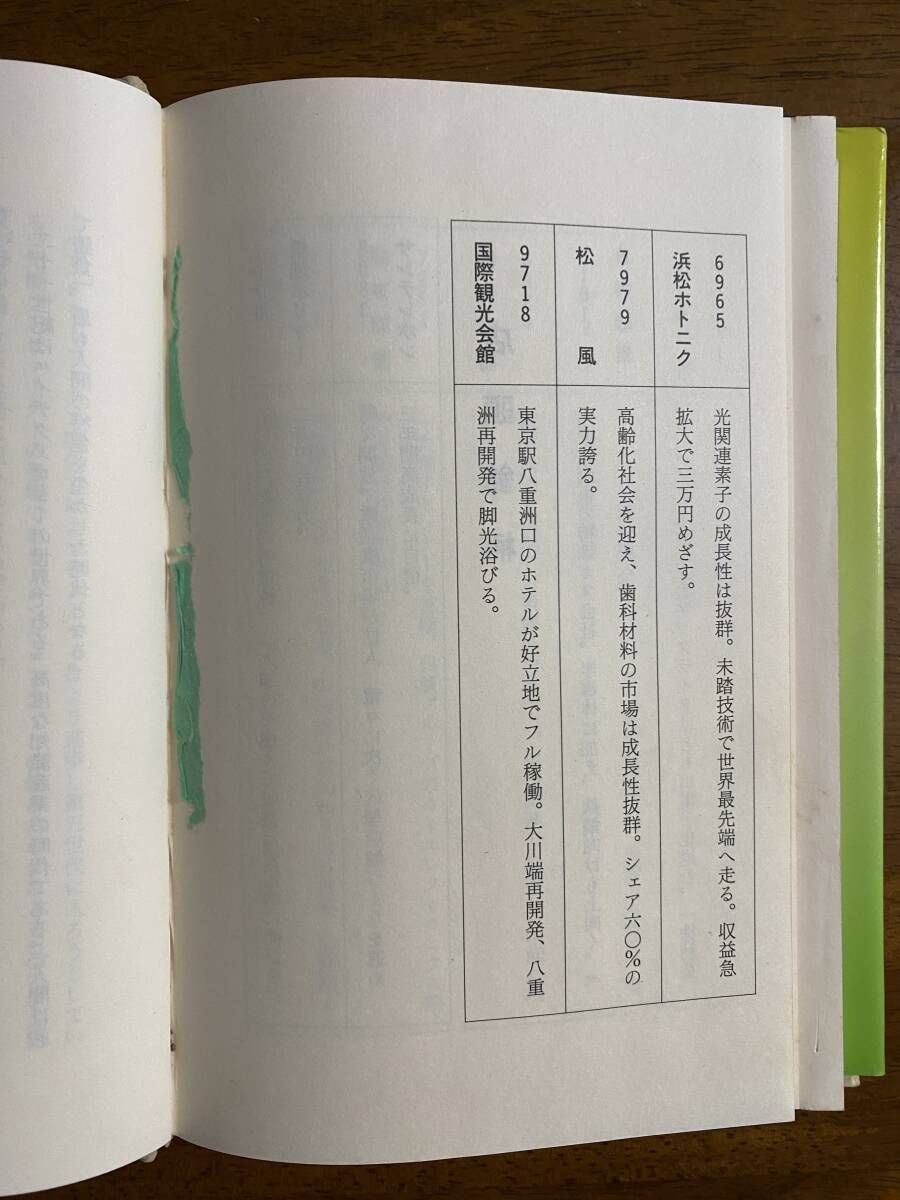 6965
浜松ホトニク
光関連素子の成長性は抜群。未踏技術で世界最先端へ走る。収益急
拡大で三万円めざす。
7979
松風
高齢化社会を迎え、歯科材料の市場は成長性抜群。シェア六〇％の
実力誇る。
9718
国際観光会館
東京駅八重洲口のホテルが好立地でフル稼働。大川端再開発、八重
洲再開発で脚光浴びる。